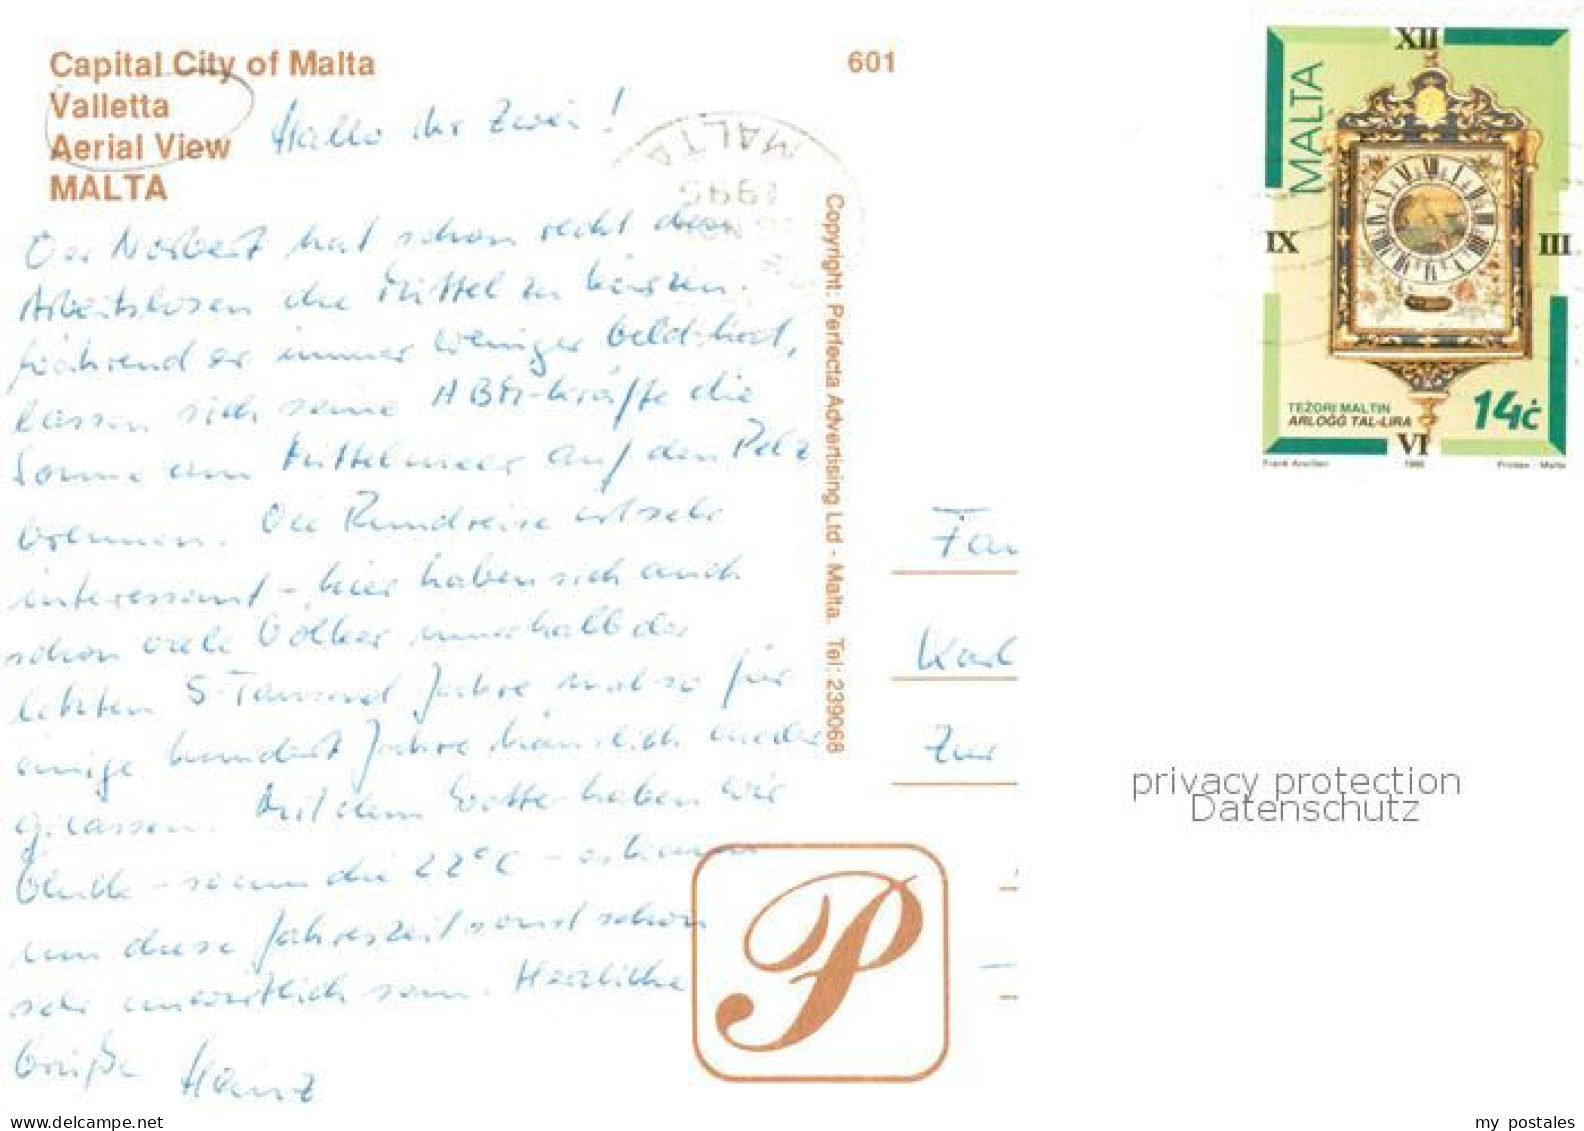 Capital City of Malta
Valletta
Aerial View
MALTA
601
Hallo ihr Zwei!
MALTA
1995
NOV
Der Norbert hat schon recht den
Arbeitslosen die Mittel zu kürzen.
Während er immer weniger Geld hat,
lassen sich seine ABM-kräfte die
Sonne am Mittelmeer auf den Pelz
brennen. Die Rundreise ist sehr
interessant - hier haben sich auch
schon viele Völker innerhalb der
letzten 5-Tausend Jahre mal so für
einige hundert Jahre häuslich nieder
gelassen. Mit dem Wetter haben wir
Glück - so um die 22°C - es kann
um diese Jahreszeit sonst schon
sehr unwirtlich sein. Herzliche
Grüße Heinz
Copyright: Perfecta Advertising Ltd - Malta. Tel: 239068
P
Fam
Karl
Zur
MALTA
XII
III
VI
IX
TEŻORI MALTIN
ARLOĠĠ TAL-LIRA
14ċ
1995
Printex - Malta
privacy protection
Datenschutz
www.delcampe.net
my postales